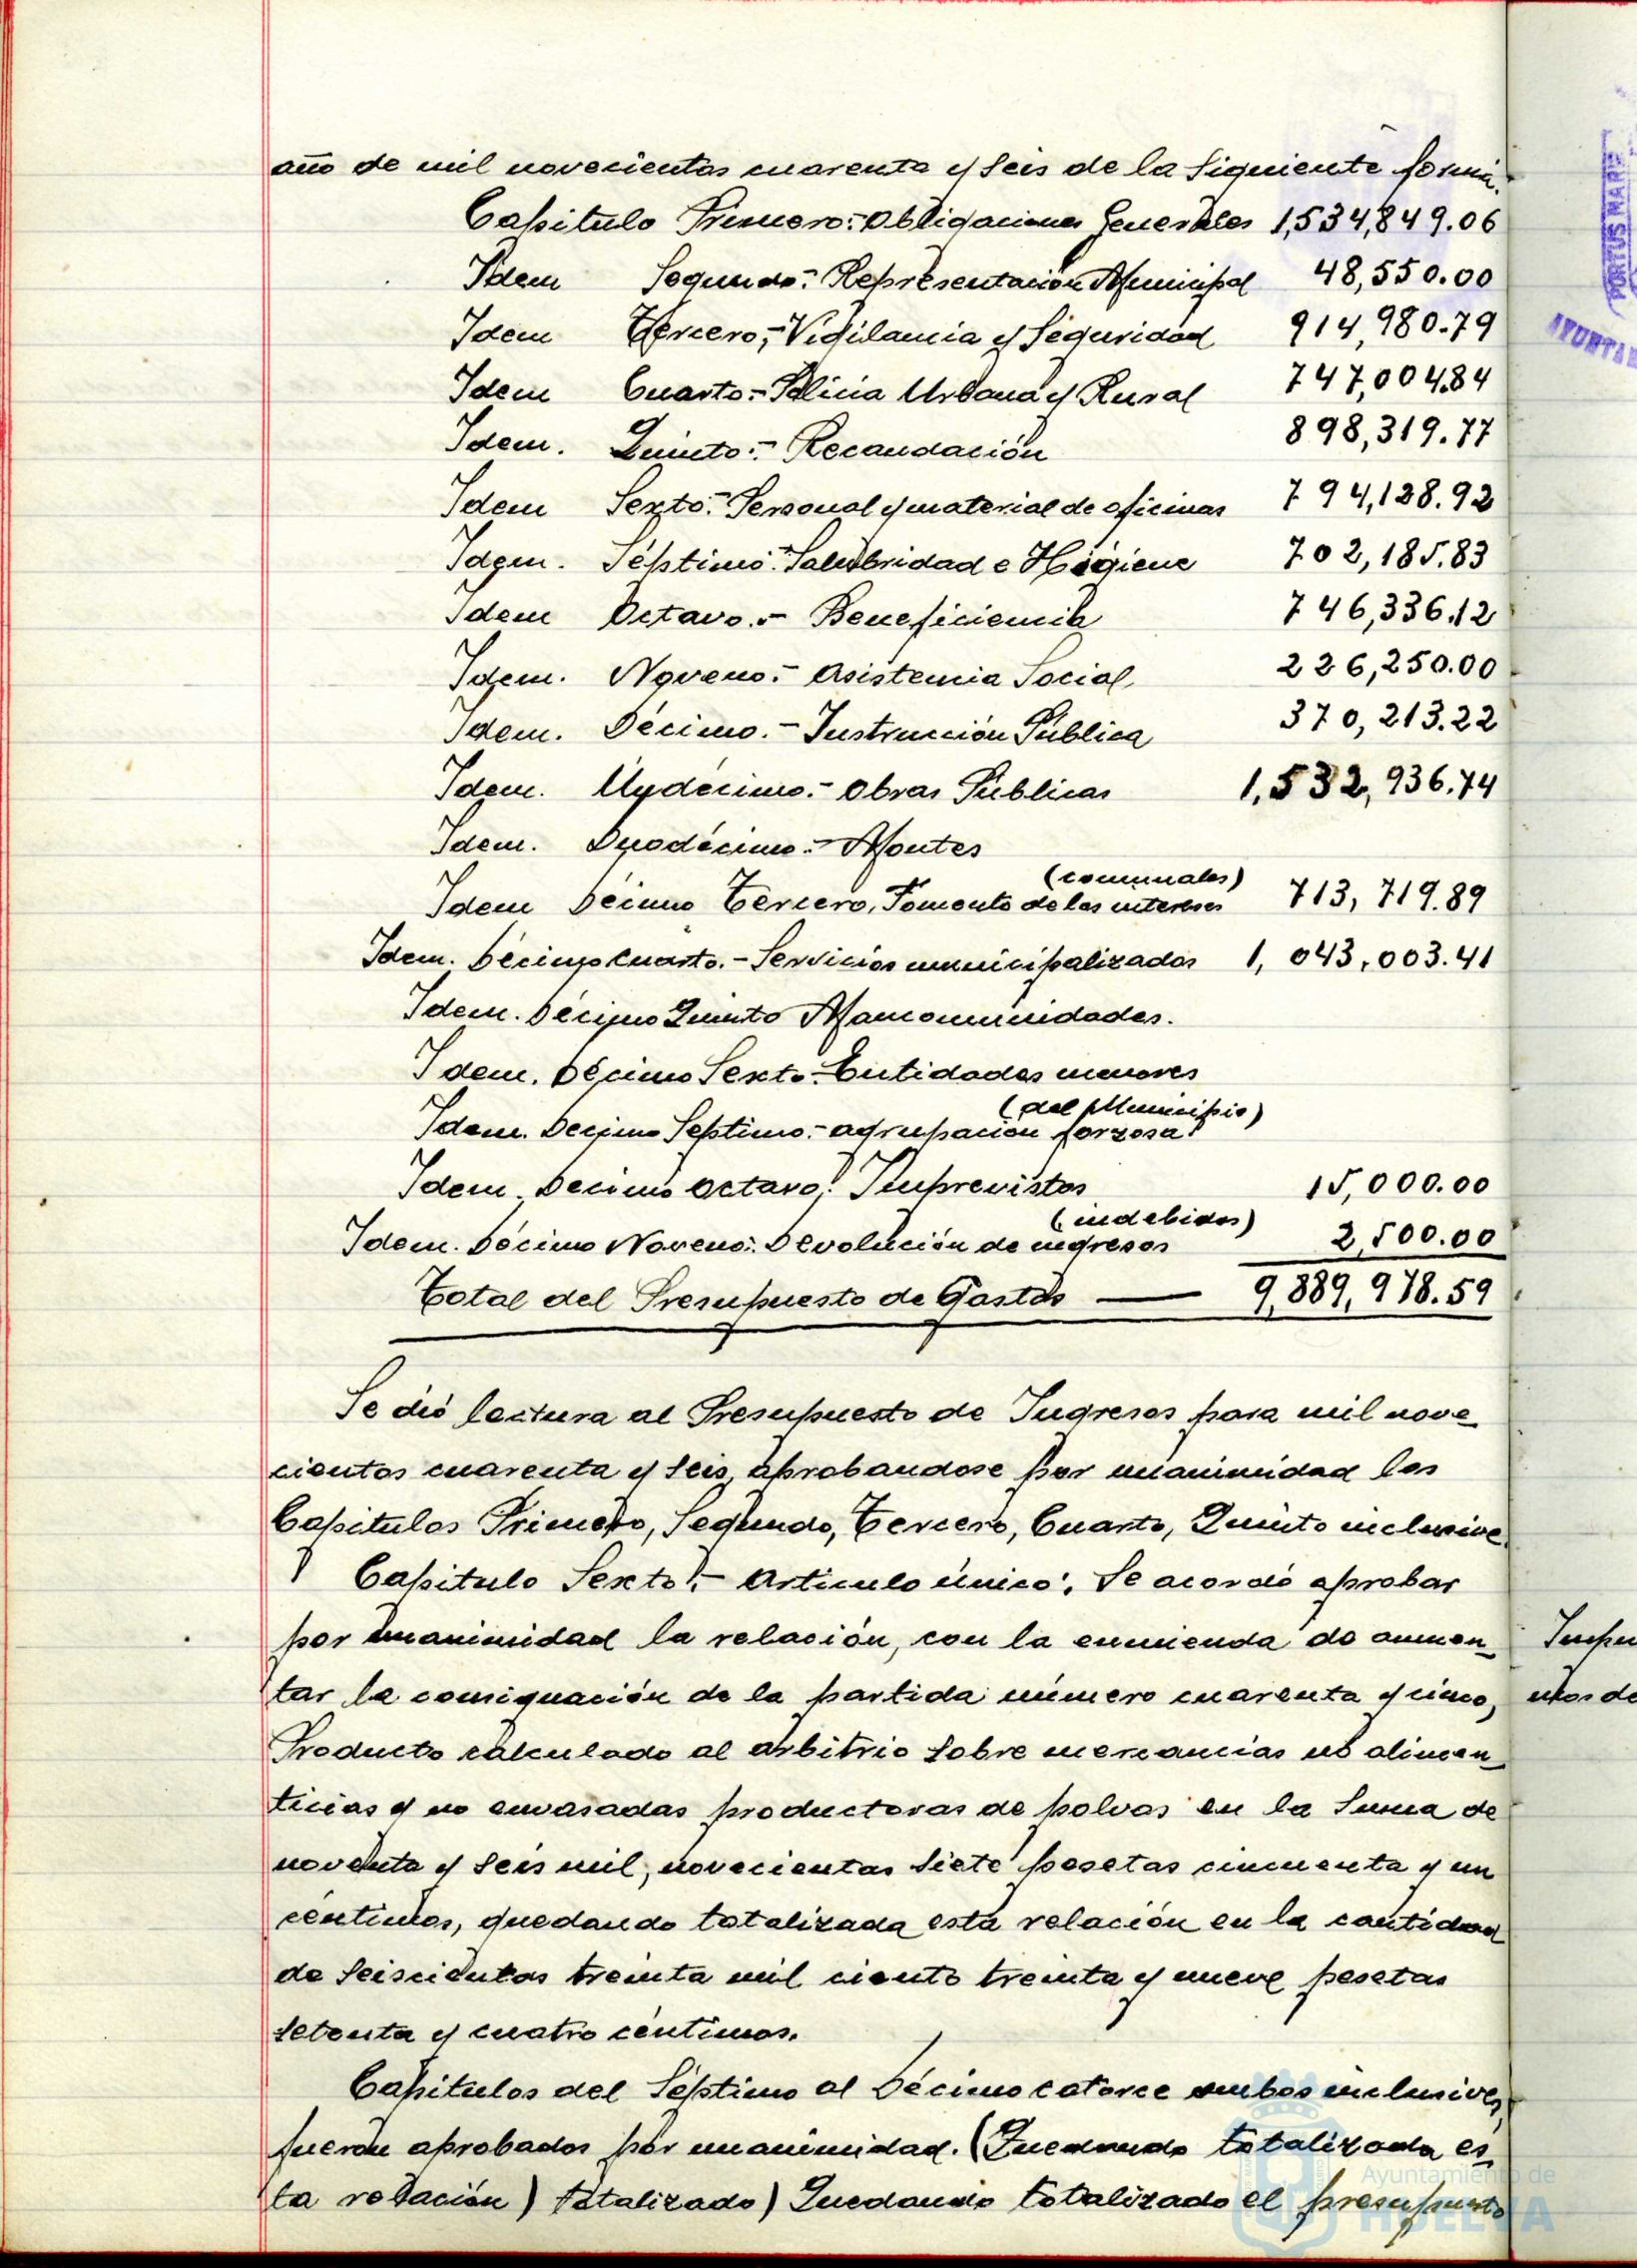 año de mil novecientos cuarenta y seis de la siguiente forma.
Capitulo Primero:- Obligaciones Generales 1,534,849.06
Idem Segundo:- Representación Municipal 48,550.00
Idem Tercero,- Vigilancia y Seguridad 914,980.79
Idem Cuarto.- Policia Urbana y Rural 747,004.84
Idem. Quinto:- Recaudación 898,319.77
Idem Sexto:- Personal y material de oficinas 794,128.92
Idem. Séptimo:- Salubridad e Higiene 702,185.83
Idem Octavo.- Beneficiencia 746,336.12
Idem. Noveno:- Asistencia Social 226,250.00
Idem. Décimo.- Instrucción Pública 370,213.22
Idem. Undécimo.- Obras Públicas 1,532,936.74
Idem. Duodécimo.- Montes
(comunales)
Idem Décimo Tercero, Fomento de los intereses 713,719.89
Idem. Décimo Cuarto.- Servicios municipalizados 1,043,003.41
Idem. Décimo Quinto Mancomunidades.
Idem. Décimo Sexto.- Entidades menores
(del Municipio)
Idem. Decimo Septimo.- agrupación forzosa
Idem. Decimo octavo: Imprevistos 15,000.00
(indebidos)
Idem. Décimo Noveno: Devolución de ingresos 2,500.00
Total del Presupuesto de Gastos — 9,889,978.59
Se dió lectura al Presupuesto de Ingresos para mil nove
cientos cuarenta y seis, aprobandose por unanimidad los
Capitulos Primero, Segundo, Tercero, Cuarto, Quinto inclusive
Capitulo Sexto.- Articulo único. Se acordó aprobar
por unanimidad la relación, con la enmienda de aumen
tar la consignación de la partida número cuarenta y cinco,
Producto calculado al arbitrio sobre mercancias no alimen
ticias y no envasadas productoras de polvos en la suma de
noventa y seis mil, novecientas siete pesetas cincuenta y un
centimos, quedando totalizada esta relación en la cantidad
de seiscientas treinta mil ciento treinta y nueve pesetas
setenta y cuatro céntimos.
Capitulos del Séptimo al Décimo catorce ambos inclusives,
fueron aprobados por unanimidad. (Quedando totalizada es
ta relación) totalizado) Quedando totalizado el presupuesto
PORTUS MARIS
AYUNTA
Ayuntamiento de
HUELVA